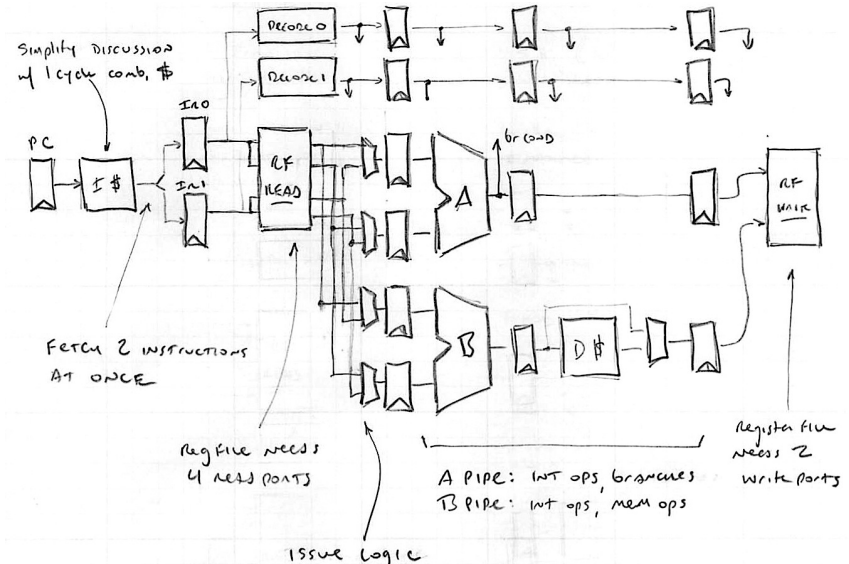 Simplify Discussion
w/ 1 cycle comb. $
PC
I $
IR0
IR1
Decode 0
Decode 1
RF
READ
A
br cond
B
D $
RF
Write
Fetch 2 instructions
At once
Regfile needs
4 read ports
Issue Logic
A pipe: Int ops, branches
B pipe: Int ops, mem ops
Register file
needs 2
write ports